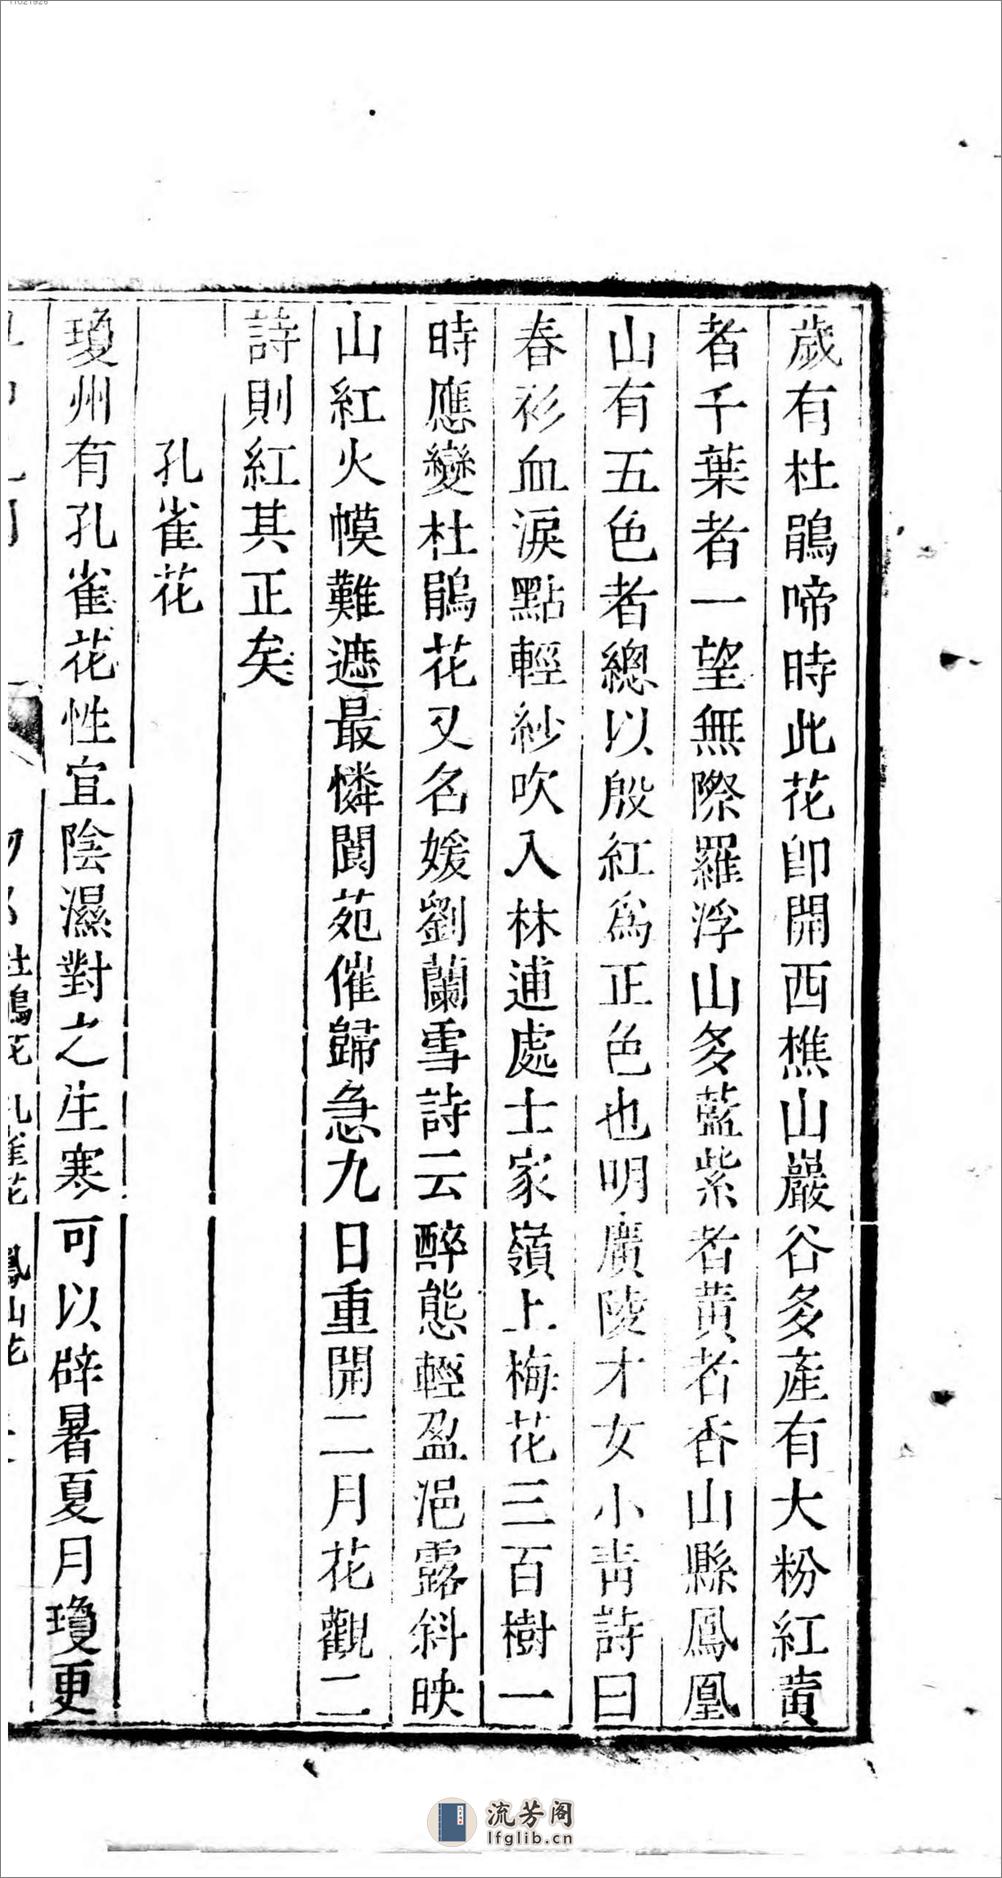 歲有杜鵑啼時此花卽開西樵山巖谷多產有大粉紅黃
者千葉者一望無際羅浮山多藍紫者黃者香山縣鳳凰
山有五色者總以殷紅爲正色也明廣陵才女小靑詩曰
春衫血淚點輕紗吹入林逋處士家嶺上梅花三百樹一
時應變杜鵑花又名媛劉蘭雪詩云醉態輕盈浥露斜映
山紅火幙難遮最憐閬苑催歸急九日重開二月花觀二
詩則紅其正矣
孔雀花
瓊州有孔雀花性宜陰濕對之生寒可以辟暑夏月瓊更
杜鵑花 孔雀花 鳳仙花
流芳阁
lfglib.cn
11021926